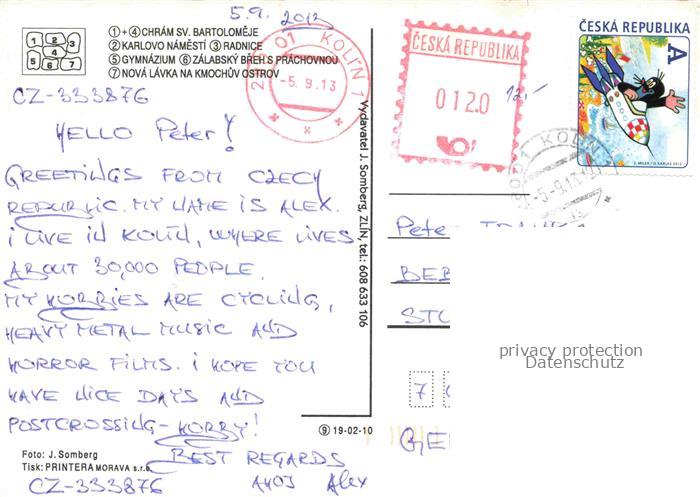 5.9. 2013
①+④ CHRÁM SV. BARTOLOMĚJE
② KARLOVO NÁMĚSTÍ ③ RADNICE
⑤ GYMNÁZIUM ⑥ ZÁLABSKÝ BŘEH S PRÁCHOVNOU
⑦ NOVÁ LÁVKA NA KMOCHŮV OSTROV
CZ-333876
HELLO Peter!
GREETINGS FROM CZECH
REPUBLIC. MY NAME IS ALEX.
I LIVE IN KOLÍN, WHERE LIVES
ABOUT 30,000 PEOPLE.
MY HOBBIES ARE CYCLING,
HEAVY METAL MUSIC AND
HORROR FILMS. I HOPE YOU
HAVE NICE DAYS AND
POSTCROSSING-HOBBY!
BEST REGARDS
AHOJ Alex
Foto: J. Somberg
Tisk: PRINTERA MORAVA s.r.o.
CZ-333876
Vydavatel J. Somberg, ZLÍN, tel.: 608 633 106
⑨ 19-02-10
KOLÍN 1
-5.9.13
ČESKÁ REPUBLIKA
0120
12,-
ČESKÁ REPUBLIKA
A
KOLÍN
-5.9.13
Pete
BEB
STU
7
GE
privacy protection
Datenschutz